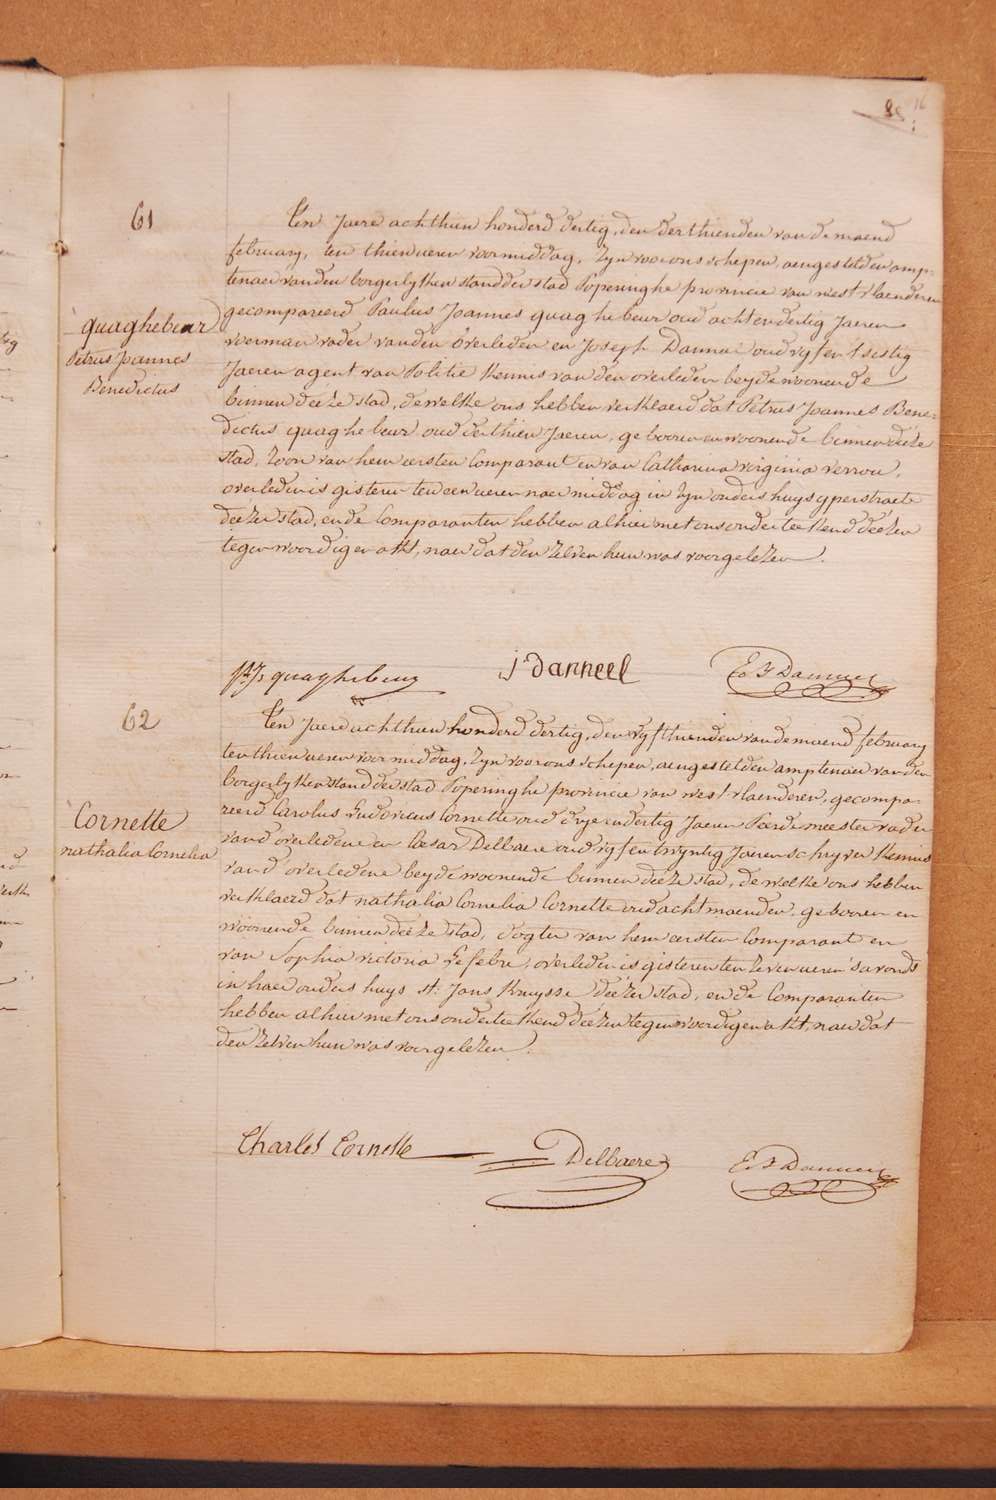 16
61
Ten Jaere achthien honderd dertig, den derthienden van de maend
february, ten thien ueren voormiddag, zyn voor ons schepen, aengestelden amp-
tenaer van den borgerlyken stand der stad Poperinghe provincie van westvlaenderen
gecompareerd Paulus Joannes quaghebeur oud achtendertig Jaeren
voerman vader van den overleden en Joseph Danneel oud vyfentsestig
Jaeren agent van Politie kennis van den overleden beyde woonende
binnen deéze stad, de welke ons hebben verklaerd dat Petrus Joannes Bene-
dictus quaghebeur oud derthien Jaeren, gebooren en woonende binnen deéze
stad, zoon van hem eersten Comparant en van Catharina virginia verrou,
overleden is gisteren ten een ueren naermiddag in zyn ouders huys yperstraete
deézer stad, en de Comparanten hebben alhier met ons onderteekend deézen
tegenwoordigen akt, naer dat den zelven hun was voorgelezen.
quaghebeur
Petrus Joannes
Benedictus
quaghebeur
J Danneel
62
Ten Jaere achthien honderd dertig, den vyfthienden van de maend february
ten thien ueren voormiddag, zyn voor ons schepen, aengestelden amptenaer van den
borgerlyken stand der stad Poperinghe provincie van westvlaenderen, gecompa-
reerd Carolus Ludovicus Cornette oud dryendertig Jaeren Peerdemeester vader
van d'overledene en Cæsar Delbaere oud vyfentwyntig Jaeren schryver kennis
van d'overledene beyde woonende binnen deéze stad, de welke ons hebben
verklaerd dat nathalia Cornelia Cornette oud acht maenden, gebooren en
woonende binnen deéze stad, dogter van hem eersten Comparant en
van Sophia victoria Lefebre, overleden is gisteren ten zeven ueren 's avonds
in haer ouders huys st. Jans kruysse deézer stad, en de Comparanten
hebben alhier met ons onderteekend deézen tegenwoordigen akt, naer dat
den zelven hun was voorgelezen.
Cornette
nathalia Cornelia
Charles Cornette
Delbaere